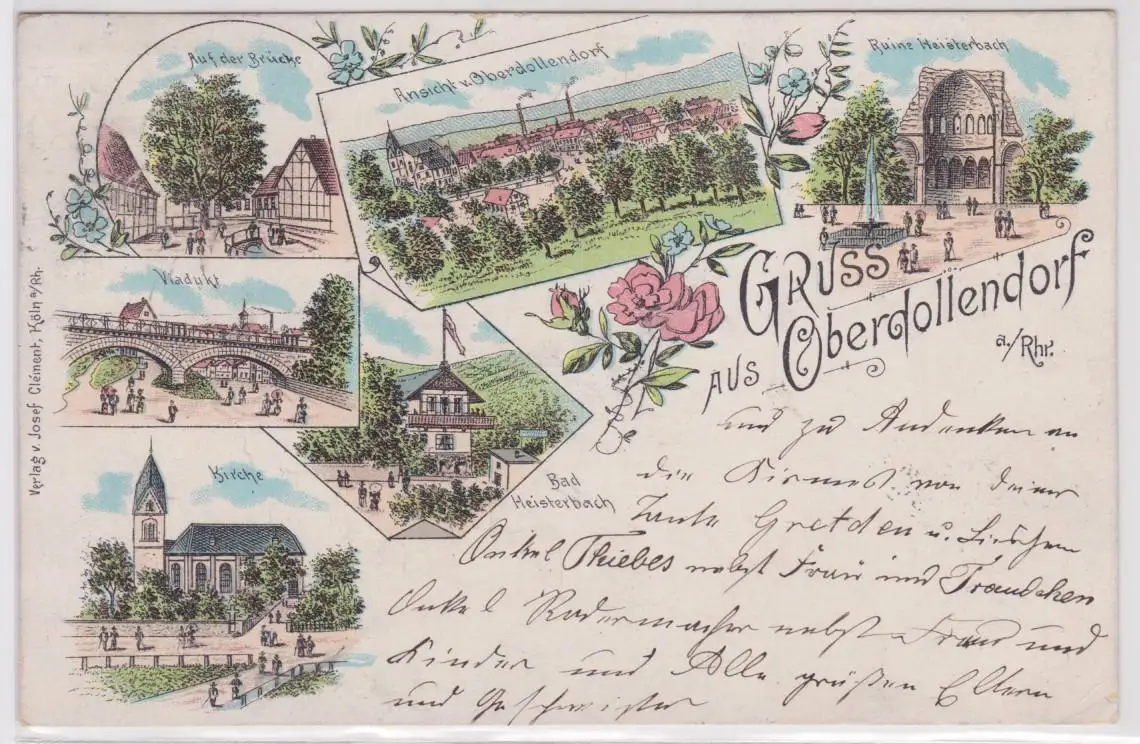 Auf der Brücke
Ansicht v. Oberdollendorf
Ruine Heisterbach
Viadukt
Bad
Heisterbach
Kirche
Verlag v. Josef Clément, Köln a/Rh.
GRUSS
AUS Oberdollendorf
a./Rhr.
und zu Andenken an
die Kirmeß von deiner
Tante Gretchen u. Lieschen
Onkel Thiebes nebst Frau und Traudchen
Onkel Radermacher nebst Frau und
Kinder und Alle grüßen Eltern
und Geschwister